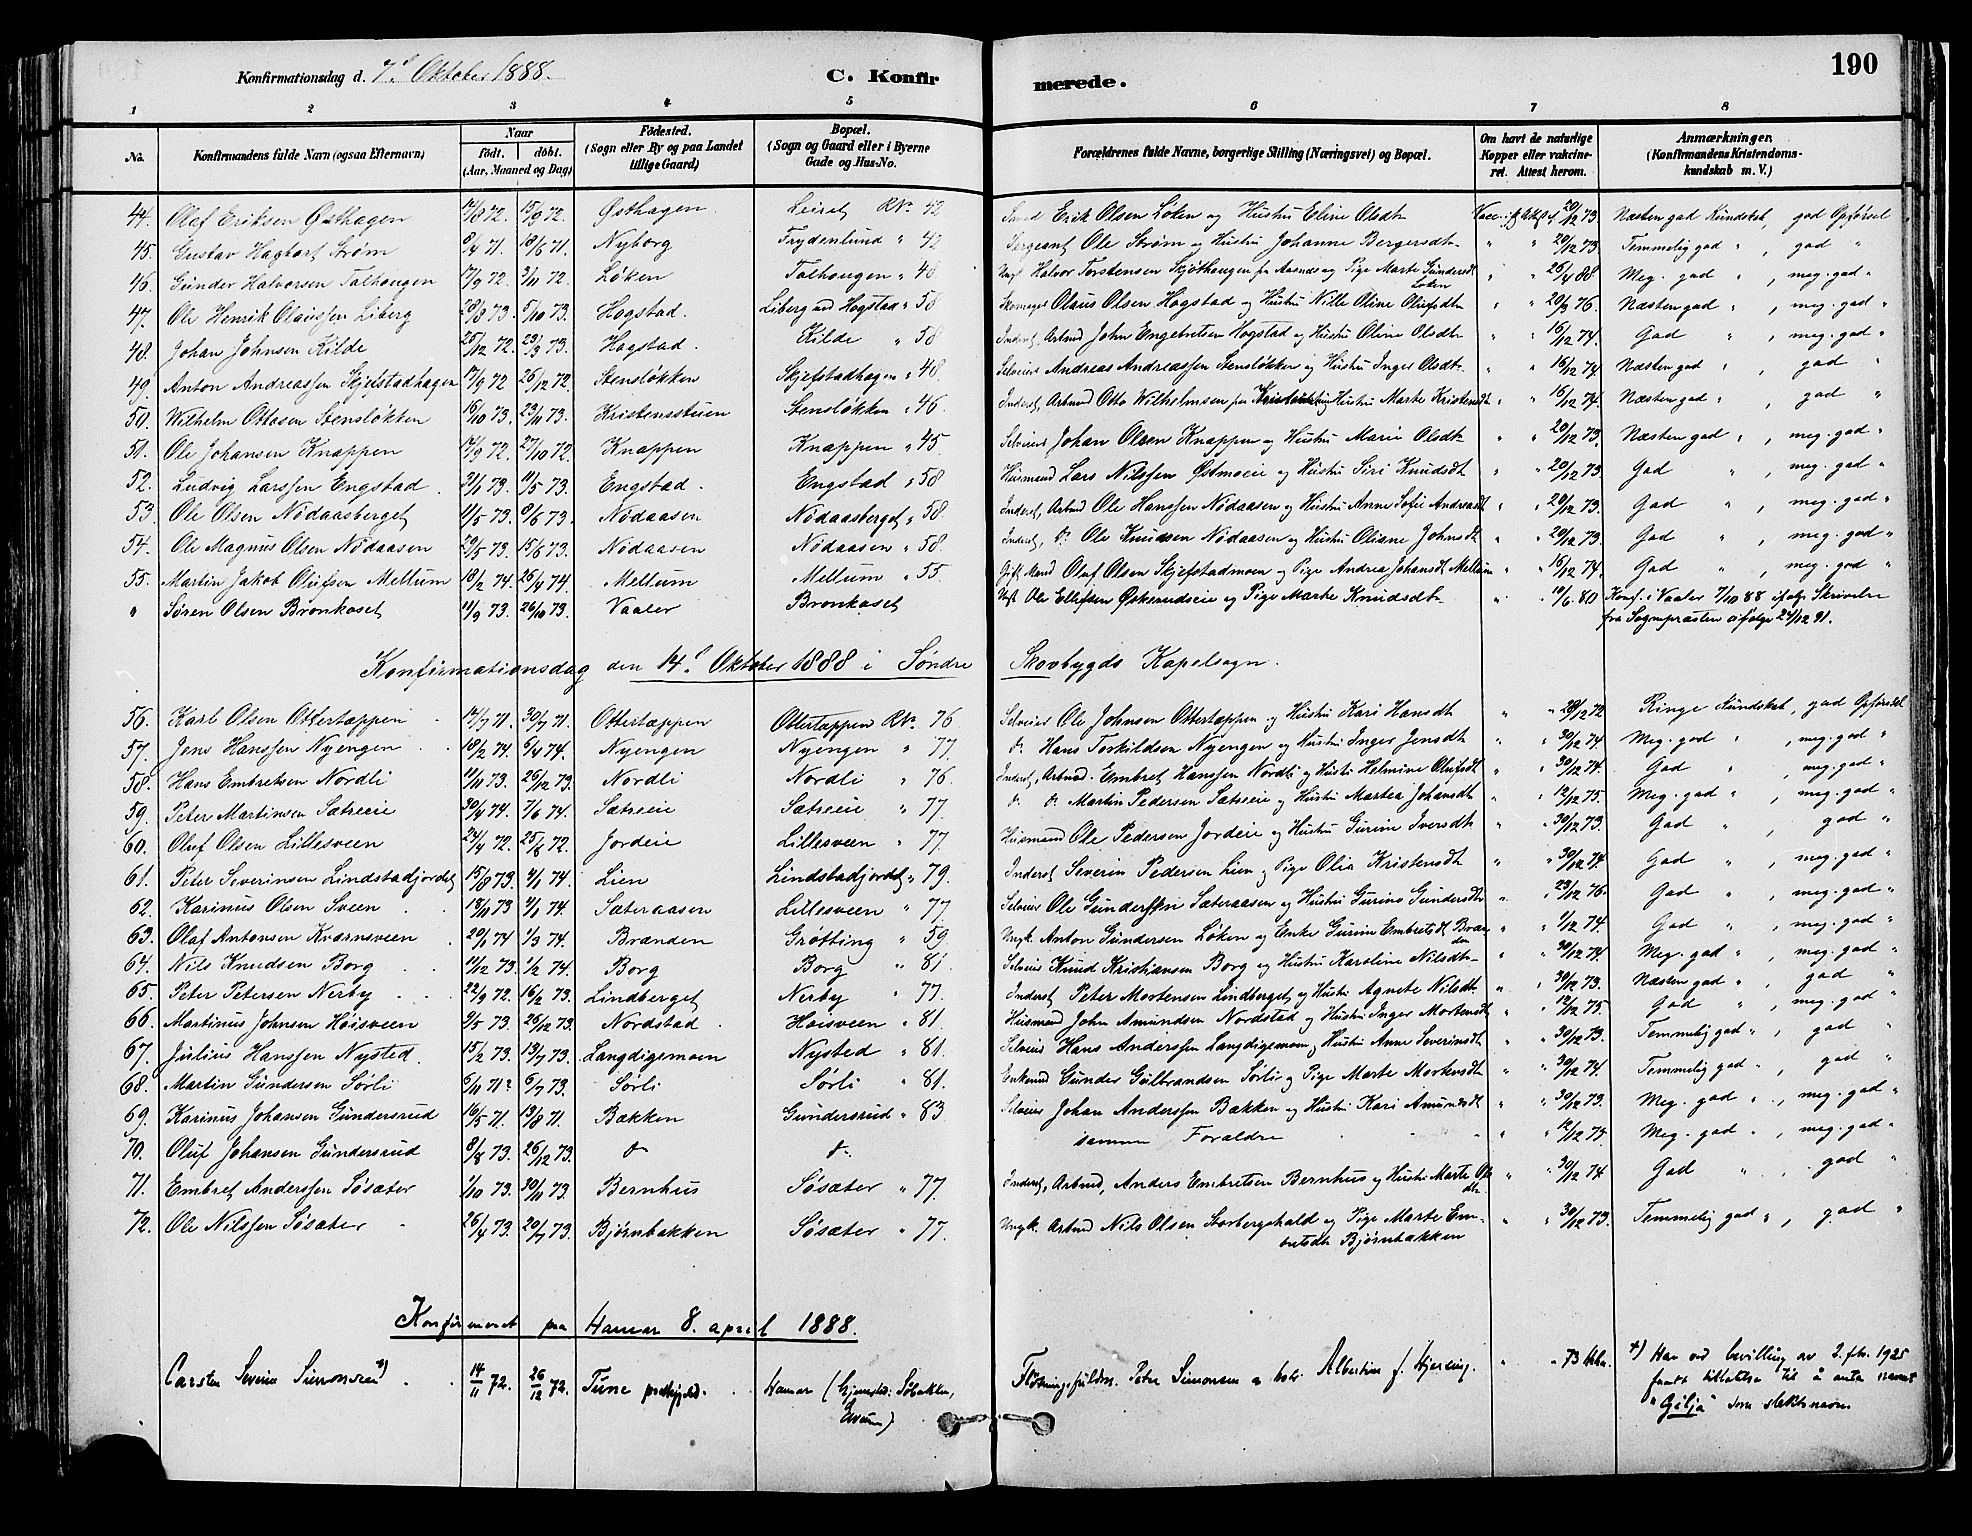 190
Konfirmationsdag d. 7d Oktober 1888. C. Konfirmerede.
1 2 3 4 5 6 7 8
No. Konfirmandens fulde Navn (ogsaa Efternavn) Naar født. døbt. (Aar, Maaned og Dag) Fødested. (Sogn eller By og paa Landet tillige Gaard) Bopæl. (Sogn og Gaard eller i Byerne Gade og Hus-No. Forældrenes fulde Navne, borgerlige Stilling (Næringsvei) og Bopæl. Om havt de naturlige Kopper eller vakcineret. Attest herom. Anmærkninger, (Konfirmandens Kristendomskundskab m. V.)
44. Olaf Eriksen Østhagen 14/8 72. 15/9 72. Østhagen. Leiret RNo. 42 Smed Erik Olsen Løken og Hustru Eline Olsdt. Vacc. 20/12 73. Næsten god Kundskab, god Opførsel
45. Gustav Hagbart Strøm 8/4 71. 18/6 71. Nyborg Frydenlund " 42 Sergeant Ole Strøm og Hustru Johanne Bergersdt. " " 20/12 73. Temmelig god ", god "
46. Gunder Halvorsen Talhaugen 17/9 72. 3/11 72. Løken Talhaugen " 48 Ungk. Halvor Torstensen Skjøthaugen fra Aasnes og Pige Marte Gundersdt Løken " " 26/4 88 Meg. god ", meg. god "
47. Ole Henrik Olaussen Liberg 28/8 73. 5/10 73. Hogstad. Liberg und. Hogstad " 58 Skomager Olaus Olsen Hogstad og Hustru Nille Oline Olufsdt. " " 20/3 76. Næsten god ", meg. god "
48. Johan Johnsen Kilde 25/12 72. 23/3 73. Hogstad. Kilde " 58 Inderst, Arbmd John Engebretsen Hogstad og Hustru Oline Olsdt. " " 16/12 74. God ", meg. god "
49. Anton Andreassen Skjefstadhagen 17/9 72. 26/12 72. Stensløkken Skjefstadhagen " 48. Selveier Andreas Andreassen Stensløkken og Hustru Inger Olsdt. " " 16/12 74. Næsten god ", god "
50. Wilhelm Ottosen Stensløkken 16/10 73. 23/11 73. Kristensstuen Stensløkken " 46. Inderst, Arbmd Otto Wilhelmsen fra og Hustru Marte Kristensdt " " 16/12 74. Næsten god ", god "
51. Ole Johansen Knappen 14/9 72. 27/10 72. Knappen Knappen " 45. Selveier Johan Olsen Knappen og Hustru Marie Olsdt. " " 20/12 73. Næsten god ", meg. god "
52. Ludvig Larssen Engstad. 21/1 73. 11/5 73. Engstad. Engstad " 58. Husmand Lars Nilssen Østmoeie og Hustru Siri Knudsdt " " 20/12 73. God ", meg. god "
53. Ole Olsen Nødaasberget 11/5 73. 8/6 73. Nødaasen Nødaasberget " 58. Inderst, Arbmd Ole Hanssen Nødaasen og Hustru Anne Sofie Andreasdt " " 20/12 73. God ", meg. god "
54. Ole Magnus Olsen Nødaasen 29/5 73. 15/6 73. Nødaasen Nødaasen " 58. Inderst, do Ole Knudsen Nødaasen og Hustru Oliane Johnsdt " " 20/12 73. God ", meg. god "
55. Martin Jakob Olufsen Mellum 18/2 74. 26/4 74. Mellum Mellum " 55. Gift Mand Oluf Olsen Skjefstadmoen og Pige Andrea Johansdt Mellum " " 16/12 74. God ", meg. god "
" Søren Olsen Bronkaset 11/9 73. 26/10 73. Vaaler Bronkaset Ungk. Ole Ellefsen og Pige Marte Knudsdt. " " 19/6 80 Konf. i Vaaler 7/10 88 ifølge Skrivelse
fra Sognepræsten ifølge 24/12 91.
Konfirmationsdag den 14d Oktober 1888 i Søndre Skovbygds Kapelsogn.
56. Karl Olsen Ottertappen 14/7 71. 30/7 71. Ottertappen Ottertappen RNo. 76 Selveier Ole Johnsen Ottertappen og Hustru Kari Hansdt " " 28/12 72 Ringe Kundskab, god Opførsel
57. Jens Hanssen Nyengen 18/2 74. 6/4 74. Nyengen Nyengen " 77. do Hans Torkildsen Nyengen og Hustru Inger Jensdt " " 30/12 74. Meg. god ", meg. god "
58. Hans Embretsen Nordli 11/11 73. 26/12 73. Nordli Nordli " 76. Inderst, Arbmd. Embret Hanssen Nordli og Hustru Helmine Olufsdt " " 30/12 74. God ", meg. god "
59. Peter Martinsen Sætreeie 30/4 74. 7/6 74. Sætreeie Sætreeie " 77. do do Martin Pedersen Sætreeie og Hustru Martea Johansdt " " 12/12 75. Meg. god ", meg. god "
60. Oluf Olsen Lillesveen 24/4 72. 25/6 72. Jordeie Lillesveen " 77. Husmand Ole Pedersen Jordeie og Hustru Gurine Iversdt " " 30/12 73. God ", god "
61. Peter Severinsen Lindstadjordet 15/8 73. 4/1 74. Lien Lindstadjordet " 79. Inderst Severin Pedersen Lien og Pige Olia Kristensdt " " 30/12 74. God ", meg. god "
62. Karinus Olsen Sveen 18/11 73 4/1 74. Sæteraasen Lillesveen " 77. Selveier Ole Gundersen Sæteraasen og Hustru Gurine Gundersdt " " 23/12 76. God ", meg. god "
63. Olaf Antonsen Kværnsveen 20/1 74 1/3 74. Brænden Grøtting " 59 Ungk. Anton Gundersen Løken og Enke Gurine Embretsdt Brænden " " 1/12 74. God ", meg. god "
64. Nils Knudsen Borg 11/12 73. 1/2 74. Borg Borg " 81. Selveier Knud Kristiansen Borg og Hustru Karoline Nilsdt. " " 30/12 74. Meg. god ", meg. god "
65. Peter Petersen Nerby 22/9 72. 16/2 73. Lindberget Nerby " 77. Inderst Peter Mortensen Lindberget og Hustru Agnete Nilsdt. " " 30/12 73. Næsten god ", god "
66. Martinus Johnsen Høisveen 9/5 73. 26/12 73. Nordstad. Høisveen " 81. Husmand John Amundsen Nordstad og Hustru Inger Mortensdt " " 12/12 75. God ", meg. god "
67. Julius Hanssen Nysted. 15/2 73. 13/7 73. Langdigemoen Nysted " 81. Selveier Hans Anderssen Langdigemoen og Hustru Anne Severinsdt " " 30/12 73. Temmelig god ", god "
68. Martin Gundersen Sørli 6/11 71? 6/7 73. Sørli Sørli " 81. Enkemd Gunder Gulbrandsen Sørli og Pige Marte Mortensdt " " 30/12 74. Temmelig god ", god "
69. Karinus Johansen Gundersrud 16/5 71. 13/8 71. Bakken Gundersrud " 83 Selveier Johan Anderssen Bakken og Hustru Kari Amundsdt " " 30/12 73. Meg. god ", meg. god "
70. Oluf Johansen Gundersrud 8/8 73. 26/12 73. do do samme Forældre " " 12/12 74. Meg. god ", meg. god "
71. Embret Anderssen Søsæter 1/10 73. 30/11 73. Bernhus Søsæter " 77. Inderst, Arbmd, Anders Embretsen Bernhus og Hustru Marte Olsdt. " " 30/12 74. God ", god "
72. Ole Nilssen Søsæter 26/4 73. 20/7 73. Bjørnbakken Søsæter " 77. Ungk. Arbmd Nils Olsen Storbergshald og Pige Marte Em- " " 30/12 73. Temmelig god ", god "
bretsdt. Bjørnbakken
Konfirmeret paa Hamar 8. april 1888.
Carsten Severin Simonsen *) 14/11 72. 26/12 72. Tune prestegjeld. Hamar (Hjemsted: Solbakken, Elverum). Fløtningsfuldm. Peter Simonsen o. hstr. Albertine f. Hjersing. " " 73 *) Har ved bevilling av 2. fbr. 1925
faatt tillatelse til å anta navnet
"Gilja" som slektsnavn